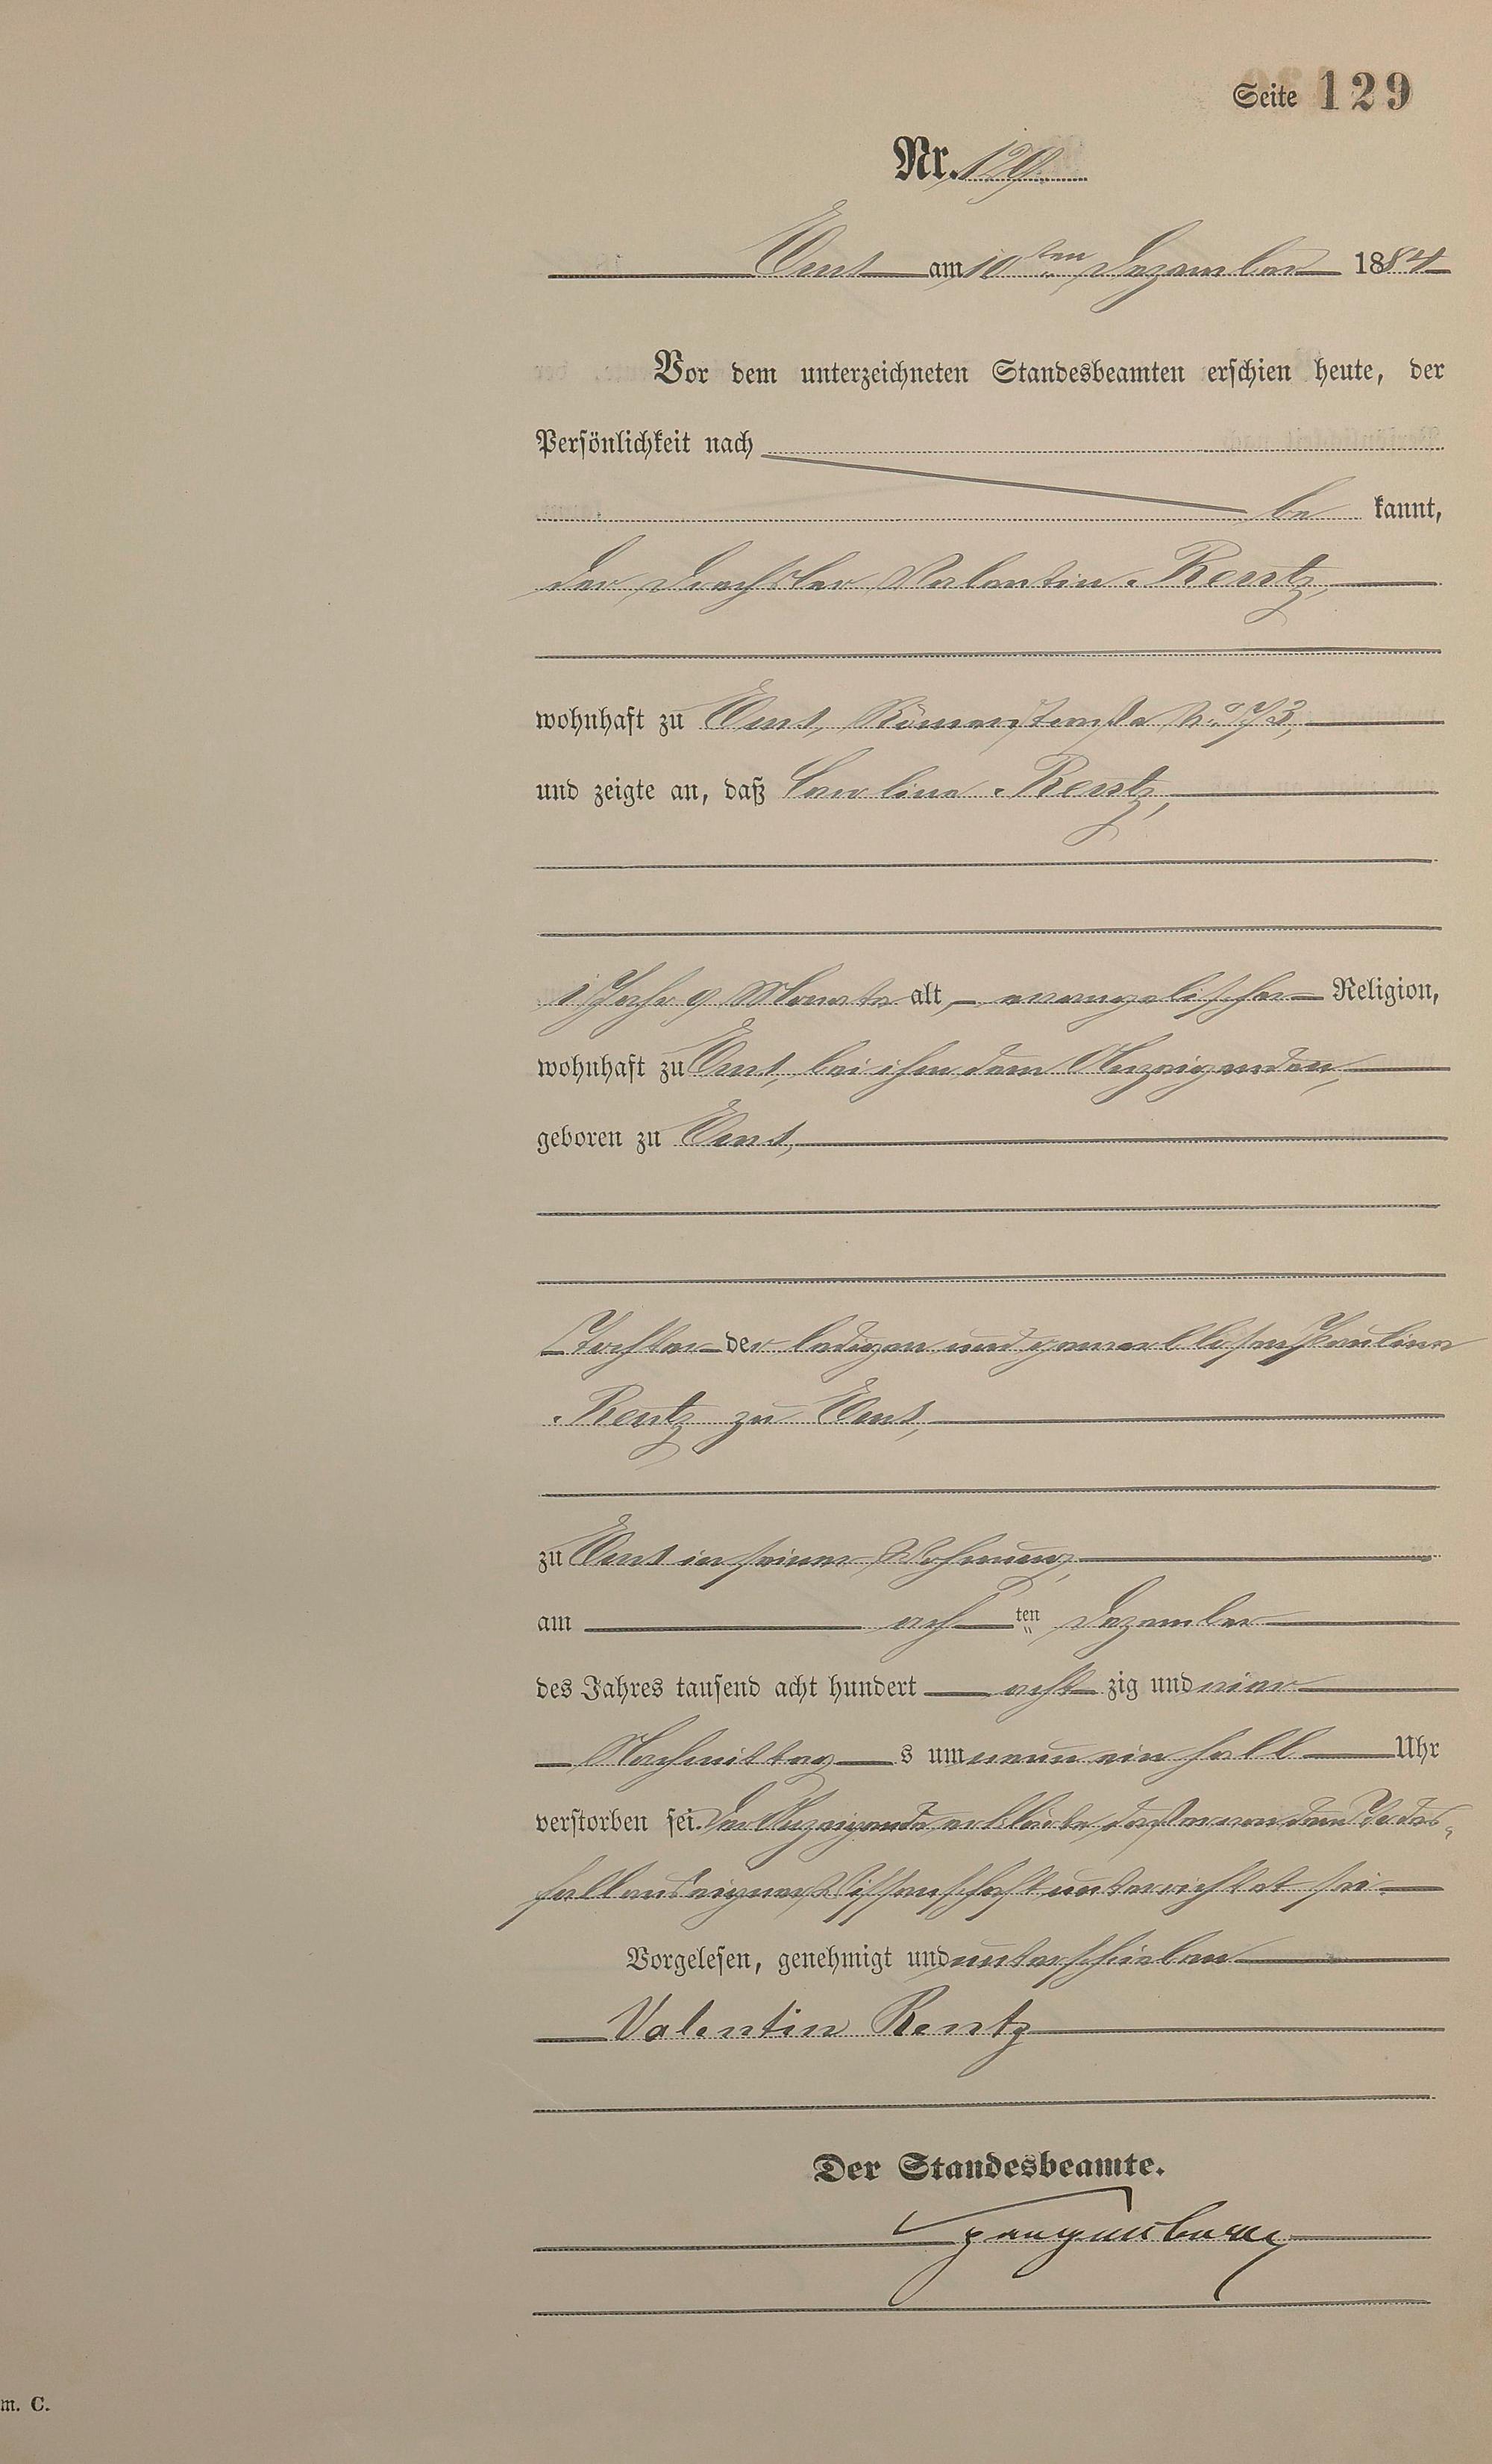 Seite 129
Nr. 129.
Ems am 10ten Dezember 1884
Vor dem unterzeichneten Standesbeamten erschien heute, der
Persönlichkeit nach
be kannt,
der Drechsler Valentin Rentz,
wohnhaft zu Ems, Römerstraße No. 73,
und zeigte an, daß Caroline Rentz,
1 Jahr 9 Monate alt, evangelischer Religion,
wohnhaft zu Ems, bei ihm dem Anzeigenden,
geboren zu Ems,
Tochter der ledigen und gewerblosen Pauline
Rentz zu Ems,
zu Ems in seiner Wohnung,
am ach ten Dezember
des Jahres tausend acht hundert acht zig und vier
Nachmittag s um neun ein halb Uhr
verstorben sei. Der Anzeigende erklärte, daß er von dem Todes-
fall aus eigner Wissenschaft unterrichtet sei.
Vorgelesen, genehmigt und unterschrieben
Valentin Rentz
Der Standesbeamte.
m. C.